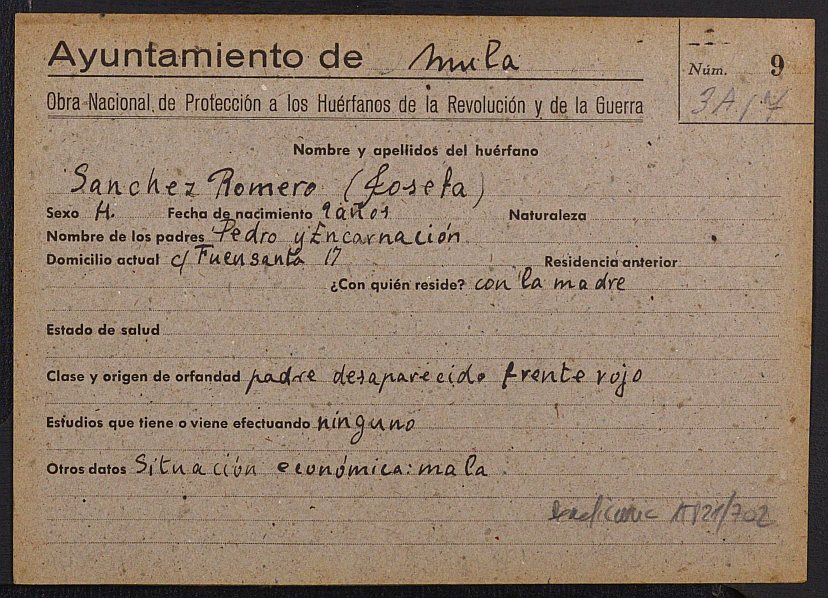 Ayuntamiento de Mula
Núm. 9
3A/7
Obra Nacional de Protección a los Huérfanos de la Revolución y de la Guerra
Nombre y apellidos del huérfano
Sanchez Romero (Josefa)
Sexo H. Fecha de nacimiento 9 años Naturaleza
Nombre de los padres Pedro y Encarnación
Domicilio actual c/ Fuensanta 17 Residencia anterior
¿Con quién reside? con la madre
Estado de salud
Clase y origen de orfandad padre desaparecido frente rojo
Estudios que tiene o viene efectuando ninguno
Otros datos Situación económica: mala